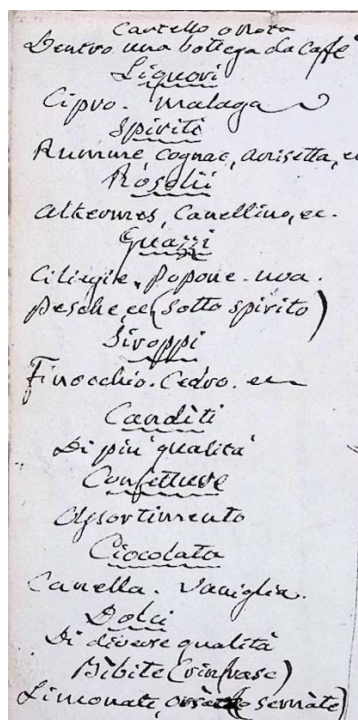 Cartello o Nota
Dentro una bottega da Caffè
Liquori
Cipro. Malaga
Spiriti
Rumme, Cognac, anisetta, ec
Rosolii
Alkermes, Canellino, ec.
Guazzi
Ciliegie. Popone. uva.
Pesche, ec (Sotto spirito)
Siroppi
Finocchio. Cedro. ec
Canditi
Di più qualità
Confetture
Assortimento
Ciocolata
Canella. Vaniglia.
Dolci
Di diverse qualità
Bibite (rinfresc)
Limonate, semate)